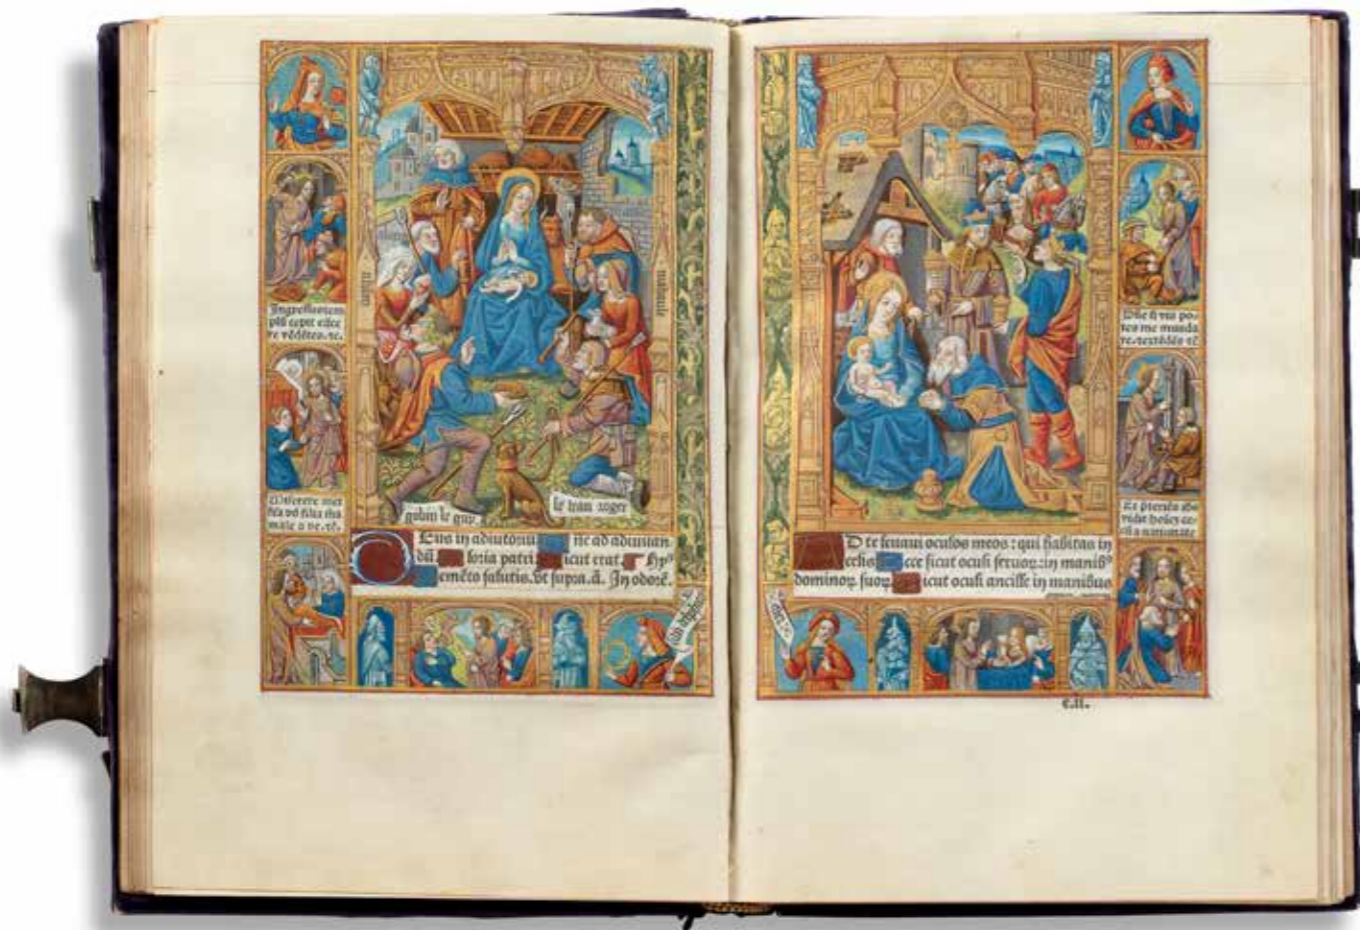 Ingressus tem
plū cepit eiice
re vēdētes. ⁊c.
Miserere mei
fili dd filia mea
male a ve. ⁊c.
alison
mahault
gobin le gay
le beau roger
Eus in adiutoriū ne ad adiuuan
dū. loria patri. icut erat. Hp⁹
emēto salutis. vt supra. ā. In odorē.
Dñe si vis po-
tes me munda
re. ⁊ extēdēs ⁊c
Et preteriēs ihs
vidit hoīez ce-
cū a natiuitate
D te leuaui oculos meos: qui habitas in
celis cce sicut oculi seruoꝝ: in manib⁹
dominoꝝ suoꝝ icut oculi ancille in manibus
c.ii.